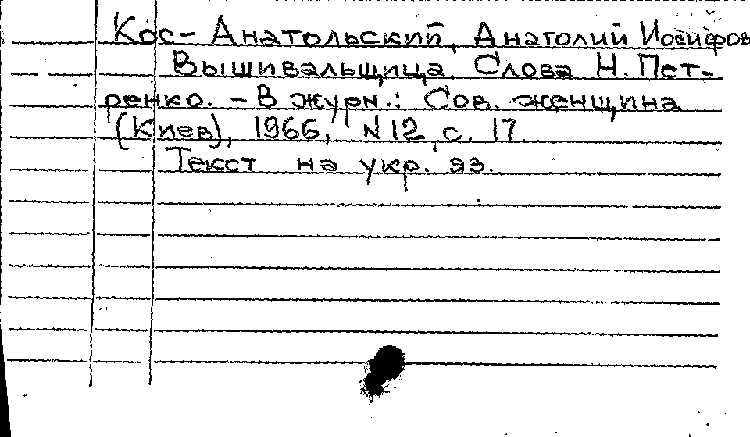 Кос-Анатольский, Анатолий Иосифов
Вышивальщица. Слова Н. Пет-
ренко. - В журн.: Сов. женщина
(Киев), 1966, N12, с. 17.
Текст на укр. яз.